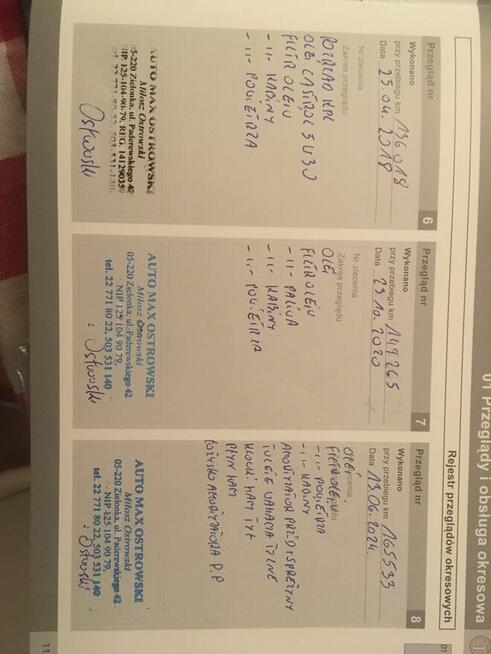 01 Przeglądy i obsługa okresowa
Rejestr przeglądów okresowych
Przegląd nr 6
Wykonano
przy przebiegu km 136018
Data 25.04.2018
Nr zlecenia
Zakres przeglądu
ROZRZĄD KPL
OLEJ CASTROL 5W30
FILTR OLEJU
-11- KABINY
-11- POWIETRZA
AUTO MAX OSTROWSKI
Miłosz Ostrowski
05-220 Zielonka, ul. Paderewskiego 42
NIP. 125-104-90-79, REG.
Ostrowski
Przegląd nr 7
Wykonano
przy przebiegu km 149265
Data 23.10.2020
Nr zlecenia
Zakres przeglądu
OLEJ
FILTR OLEJU
-11- PALIWA
-11- KABINY
-11- POWIETRZA
AUTO MAX OSTROWSKI
Miłosz Ostrowski
05-220 Zielonka, ul. Paderewskiego 42
NIP 125 104 90 79,
tel. 22 771 80 22, 503 531 140
Ostrowski
Przegląd nr 8
Wykonano
przy przebiegu km 165533
Data 13.06.2024
OLEJ
FILTR OLEJU
-11- POWIETRZA
-11- KABINY
AMORTYZATOR PRZÓD + SPRĘŻYNY
TULEJE WAHACZA TYLNE
KLOCKI HAM TYŁ
PŁYN HAM
ŁOŻYSKO AMORTYZATORA P.P
AUTO MAX OSTROWSKI
Miłosz Ostrowski
05-220 Zielonka, ul. Paderewskiego 42
NIP 125 104 90 79,
tel. 22 771 80 22, 503 531 140
Ostrowski
11